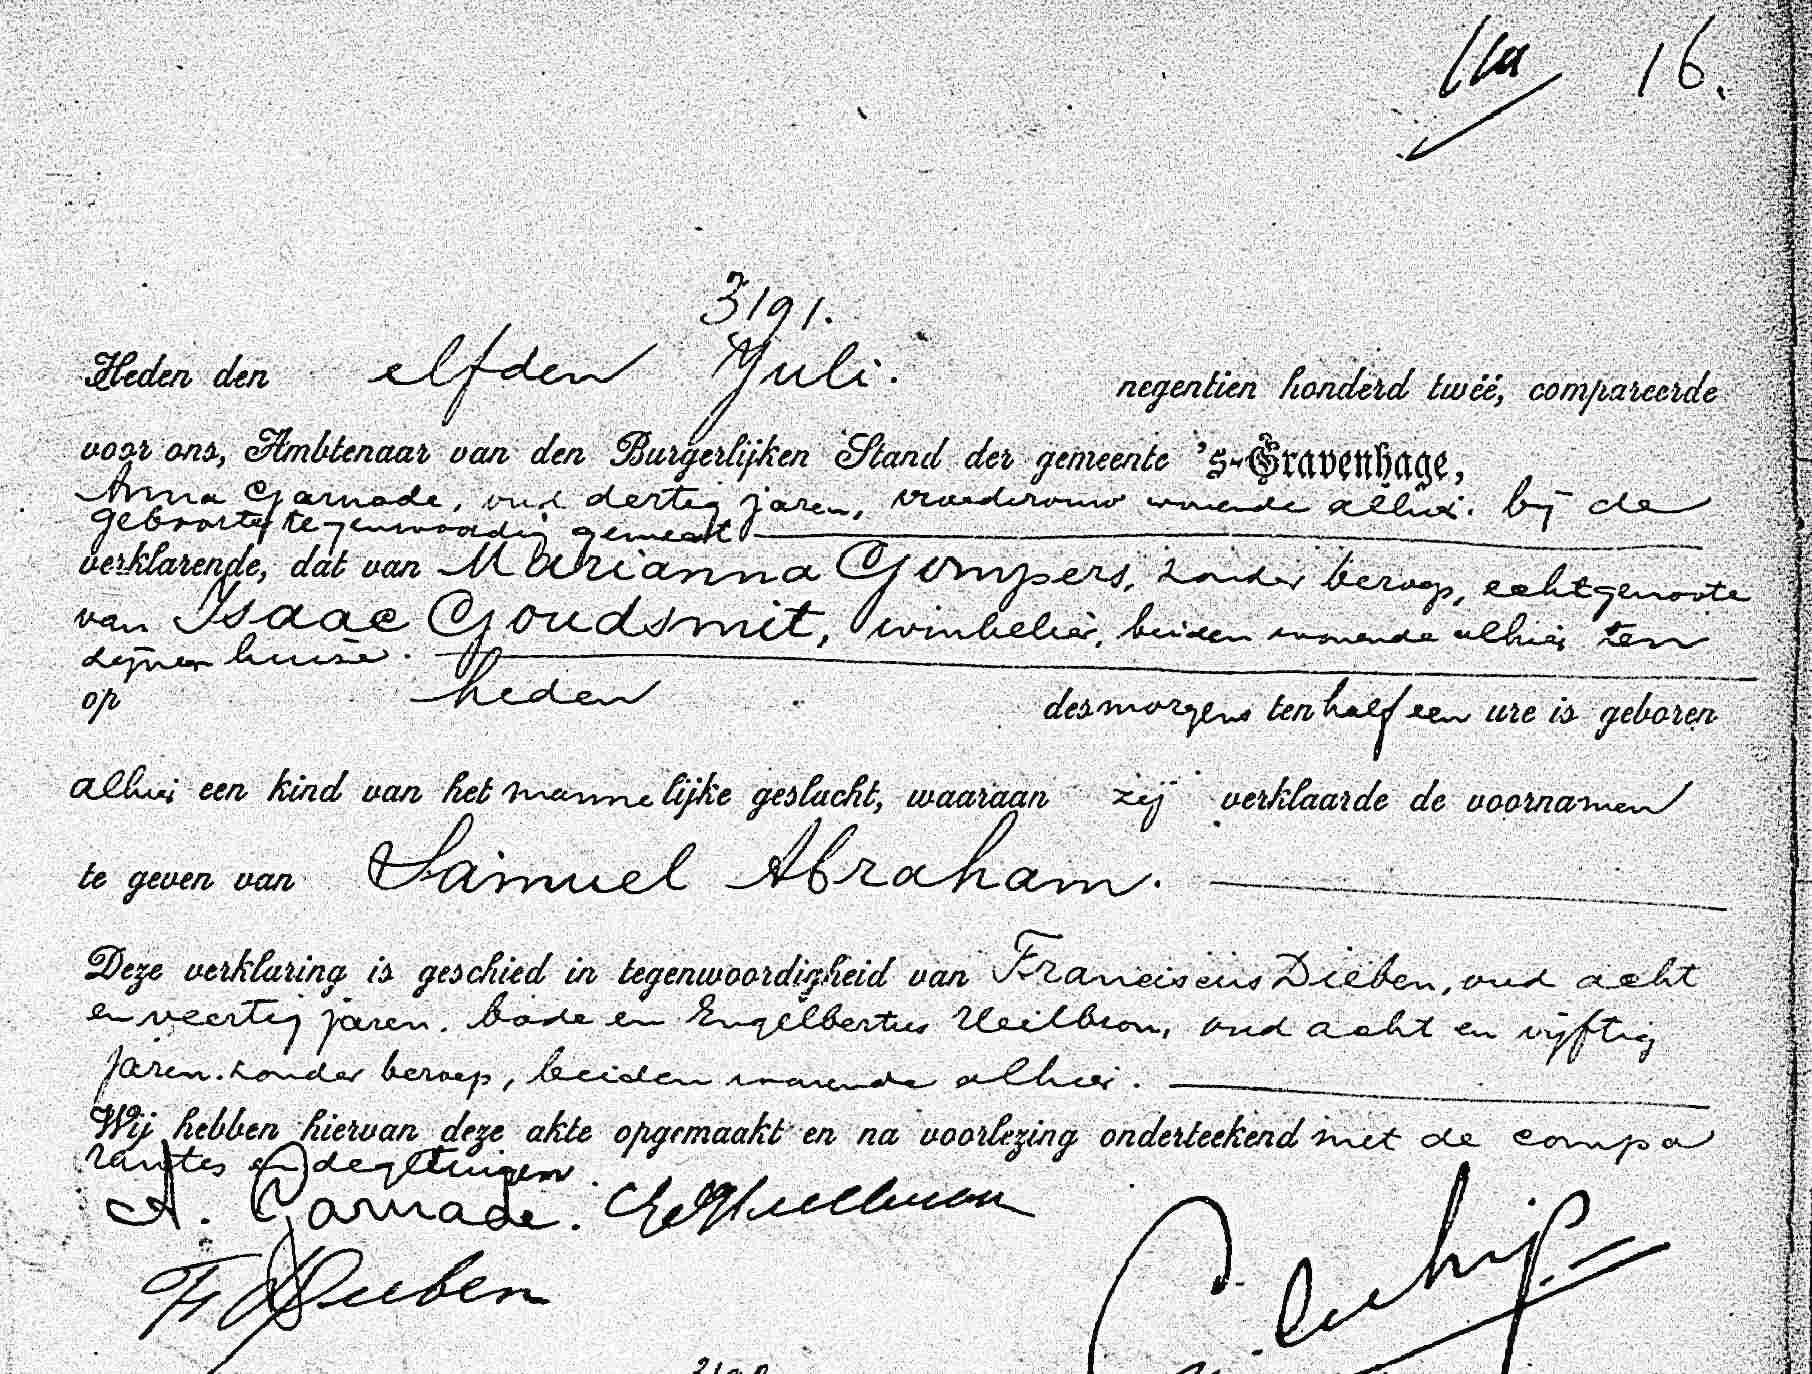 16.
3191.
Heden den elfden Juli. negentien honderd twéé, compareerde
voor ons, Ambtenaar van den Burgerlijken Stand der gemeente 's-Gravenhage,
Anna Garnade, oud dertig jaren, vroedvrouw wonende alhier. bij de
geboorte tegenwoordig geweest
verklarende, dat van Marianna Gompers, zonder beroep, echtgenoote
van Isaac Goudsmit, winkelier, beiden wonende alhier ten
zijnen huize.
op heden des morgens ten half een ure is geboren
alhier een kind van het mannelijke geslacht, waaraan zij verklaarde de voornamen
te geven van Samuel Abraham.
Deze verklaring is geschied in tegenwoordigheid van Franciscus Dieben, oud acht
en veertig jaren. bode en Engelbertus Heilbron, oud acht en vijftig
jaren. zonder beroep, beiden wonende alhier.
Wij hebben hiervan deze akte opgemaakt en na voorlezing onderteekend met de compa
rante en de getuigen.
A. Garnade.
F Dieben